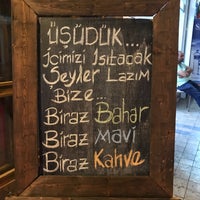 ÜŞÜDÜK...
İçimizi Isıtacak
Şeyler Lazım
Bize...
Biraz Bahar
Biraz Mavi
Biraz Kahve